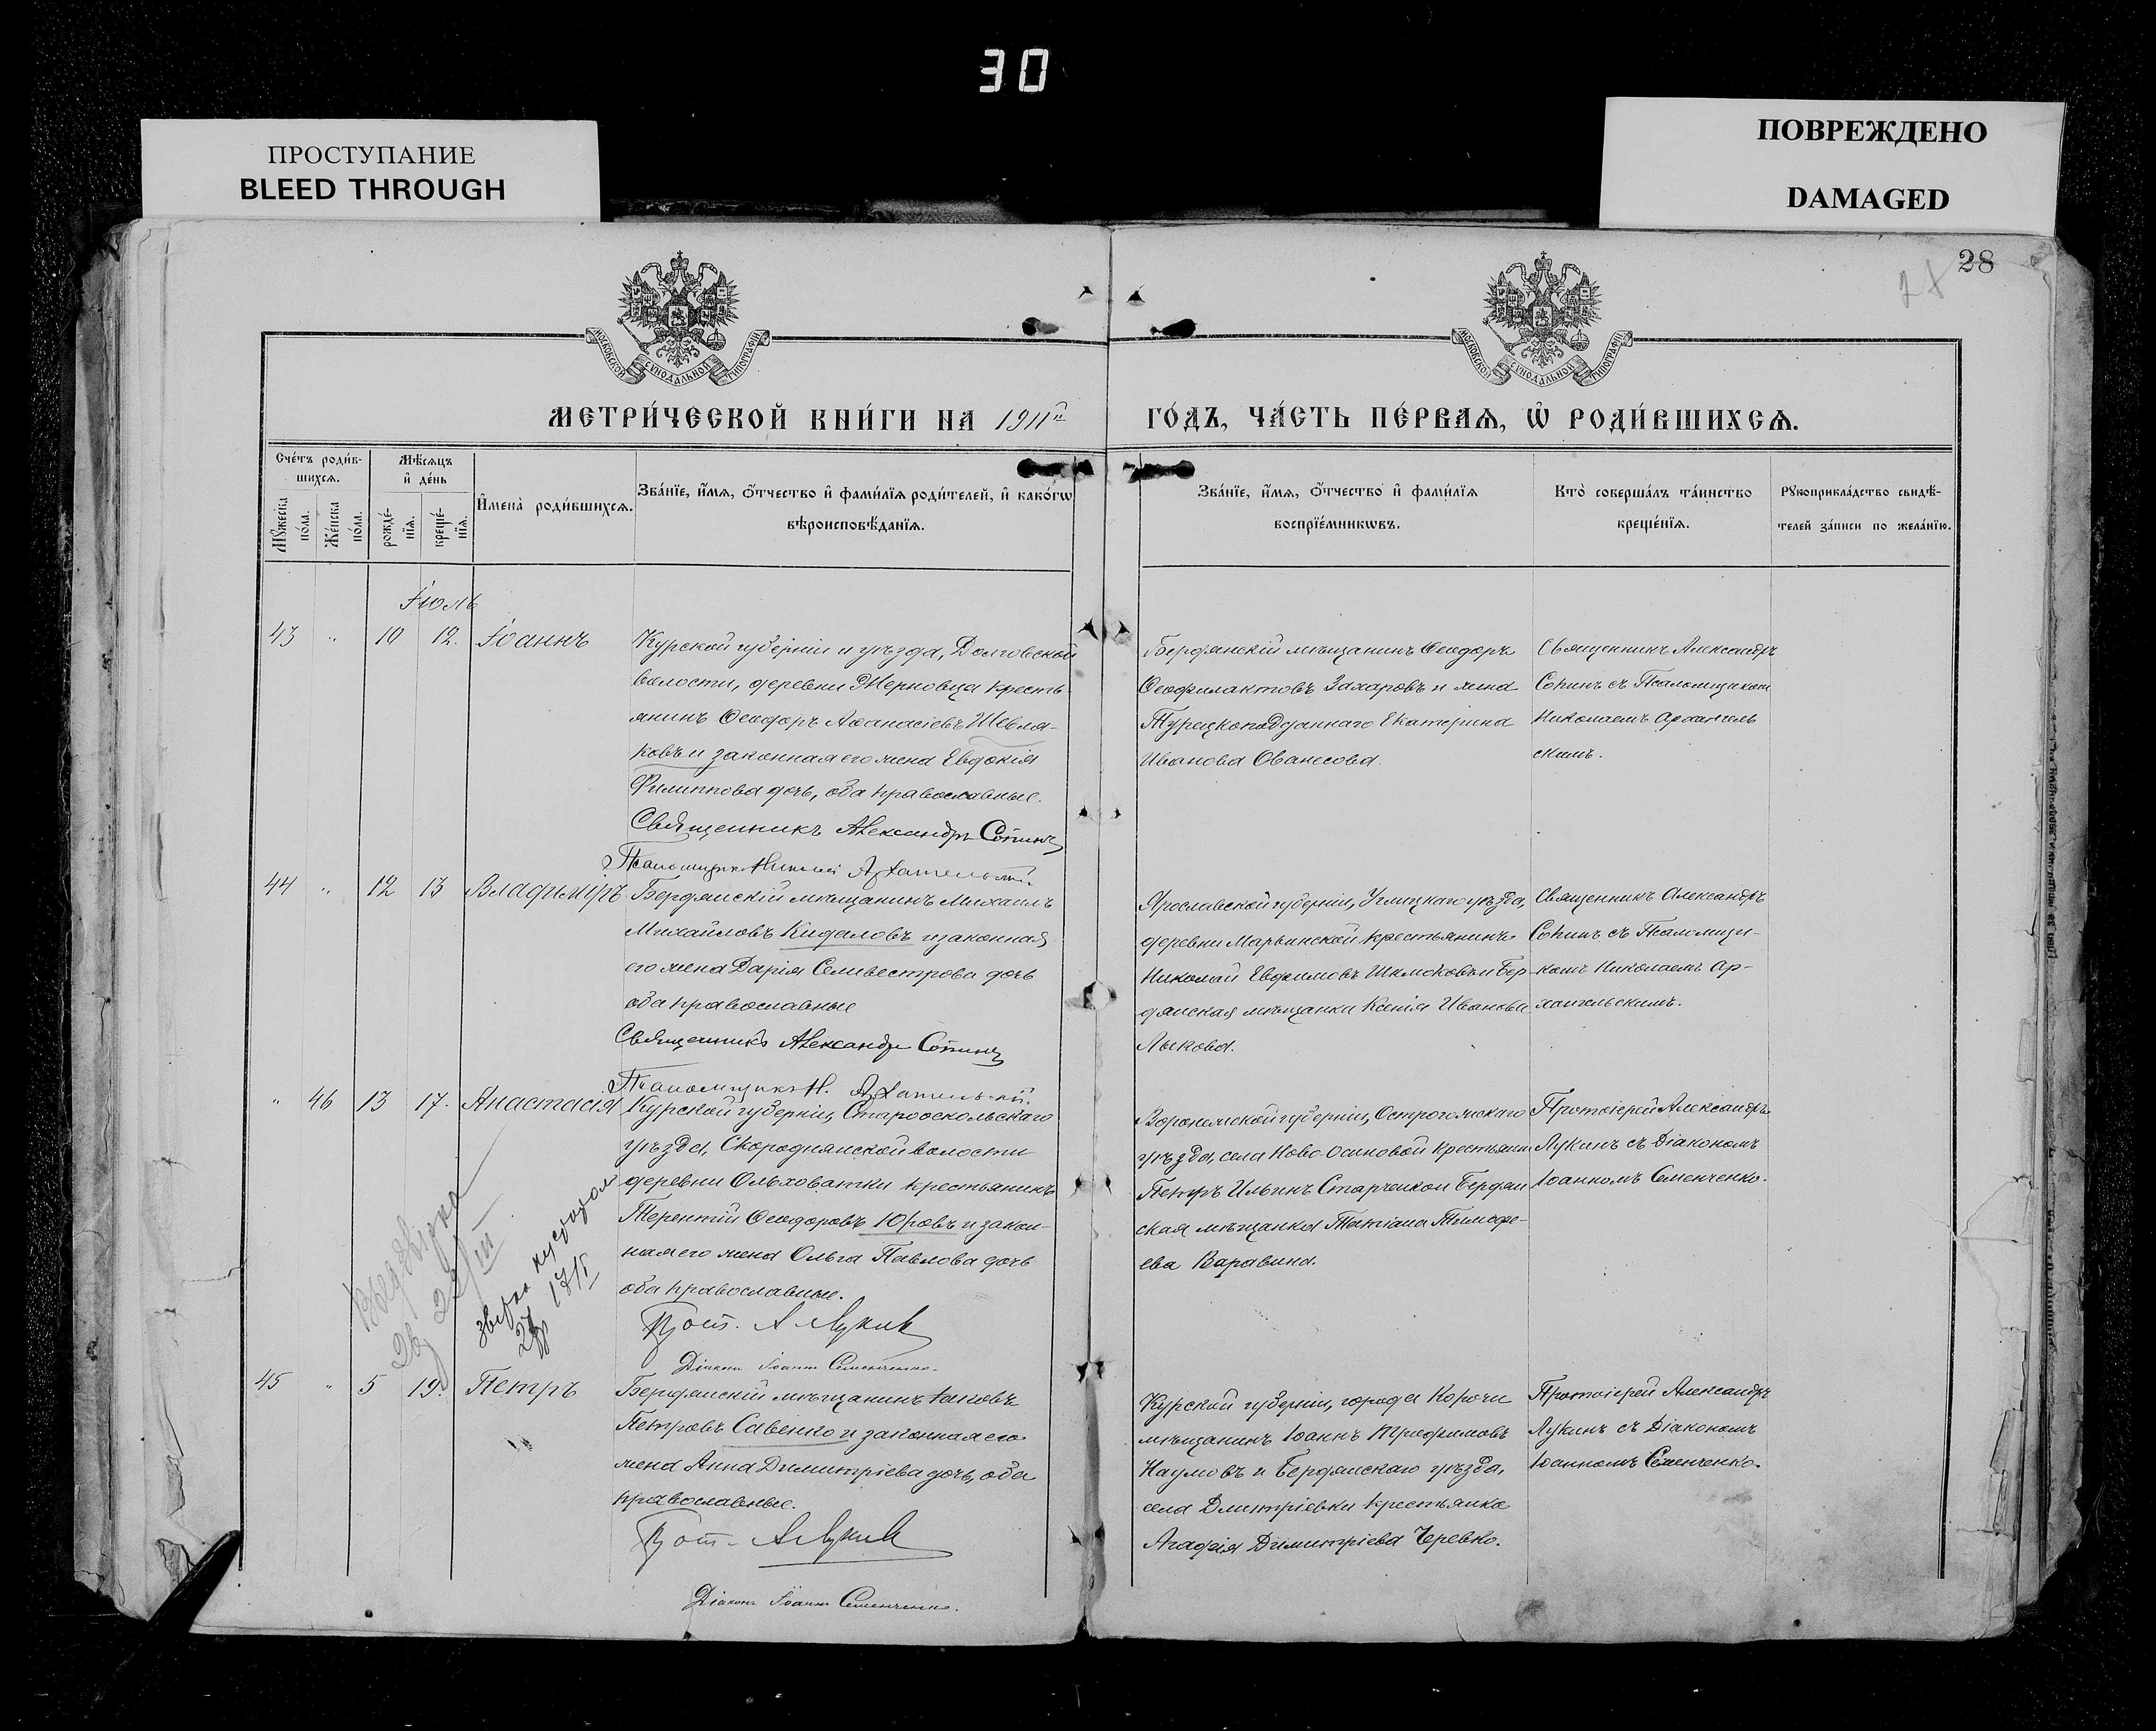 30
ПРОСТУПАНИЕ
BLEED THROUGH
ПОВРЕЖДЕНО
DAMAGED
28
МОСКОВСКОЙ СѴНОДАЛЬНОЙ ТИПОГРАФІИ
МОСКОВСКОЙ СѴНОДАЛЬНОЙ ТИПОГРАФІИ
МЕТРИ́ЧЕСКОЙ КНИ́ГИ НА 1911й
ГО́ДЪ, ЧА́СТЬ ПЕ́РВАѦ, Ѡ҆ РОДИ́ВШИХСѦ.
Сче́тъ роди́в-
шихсѧ.
Мꙋ́жеска по́ла.
Же́нска по́ла.
Мѣ́сѧцъ
и҆ де́нь
рожде́-
нїѧ.
креще́-
нїѧ.
И҆мена̀ роди́вшихсѧ.
Зва́нїе, и҆́мѧ, ѻ҆́тчество и҆ фами́лїѧ роди́телей, и҆ како́гѡ
вѣроисповѣ́данїѧ.
Зва́нїе, и҆́мѧ, ѻ҆́тчество и҆ фами́лїѧ
воспрїе́мникѡвъ.
Кто̀ соверша́лъ та́инство
креще́нїѧ.
Рꙋкоприкла́дство свидѣ́-
телей за́писи по жела́нїю.
Іюль
43 " 10 12. Іоаннъ
Курской губерніи и уѣзда, Долговской
волости, деревни Жерновца кресть-
янинъ Ѳеодоръ Аѳанасіевъ Шевля-
ковъ и законная его жена Евдокія
Филиппова дочь, оба православные.
Священникъ Александръ Сопинъ
Псаломщикъ Николай Архангельскій.
Бердянскій мѣщанинъ Ѳеодоръ
Ѳеофилактовъ Захаровъ и жена
Турецкоподданнаго Екатерина
Иванова Ованесова.
Священникъ Александръ
Сопинъ съ Псаломщикомъ
Николаемъ Архангель
скимъ.
44 " 12 13 Владиміръ
Бердянскій мѣщанинъ Михаилъ
Михайловъ Кидаловъ и законная
его жена Дарія Селивестрова дочь
оба православные
Священникъ Александръ Сопинъ
Псаломщикъ Н. Архангельскій.
Ярославской губерніи, Углицкаго уѣзда,
деревни Марьинской крестьянинъ
Николай Евфимовъ и Бер-
дянская мѣщанка Ксенія Иванова
Лыкова.
Священникъ Александръ
Сопинъ съ Псаломщи-
комъ Николаемъ Ар-
хангельскимъ.
" 46 13 17. Анастасія
Курской губерніи, Старооскольскаго
уѣзда, Скороднянской волости
деревни Ольховатки крестьянинъ
Терентій Ѳеодоровъ Юровъ и закон-
ная его жена Ольга Павлова дочь
оба православные.
Прот. А Лукин
Діаконъ Іоаннъ Семенченко.
Воронежской губерніи, Острогожскаго
уѣзда, села Ново-Осиновой крестьянин
Петръ Ильинъ Старченков Бердян
ская мѣщанка Татіана Тимоѳе-
ева Варавина.
Протоіерей Александръ
Лукинъ съ Діакономъ
Іоанномъ Семенченко.
45 " 5 19. Петръ
Бердянскій мѣщанинъ Іаковъ
Петровъ Савенко и законная его
жена Анна Димитріева дочь, оба
православные.
Прот. А Лукин
Діаконъ Іоаннъ Семенченко.
Курской губерніи, города Корочи
мѣщанинъ Іоаннъ Трофимовъ
Наумовъ и Бердянскаго уѣзда,
села Дмитріевки крестьянка
Агафія Димитріева Черевко.
Протоіерей Александръ
Лукинъ съ Діакономъ
Іоанномъ Семенченко.